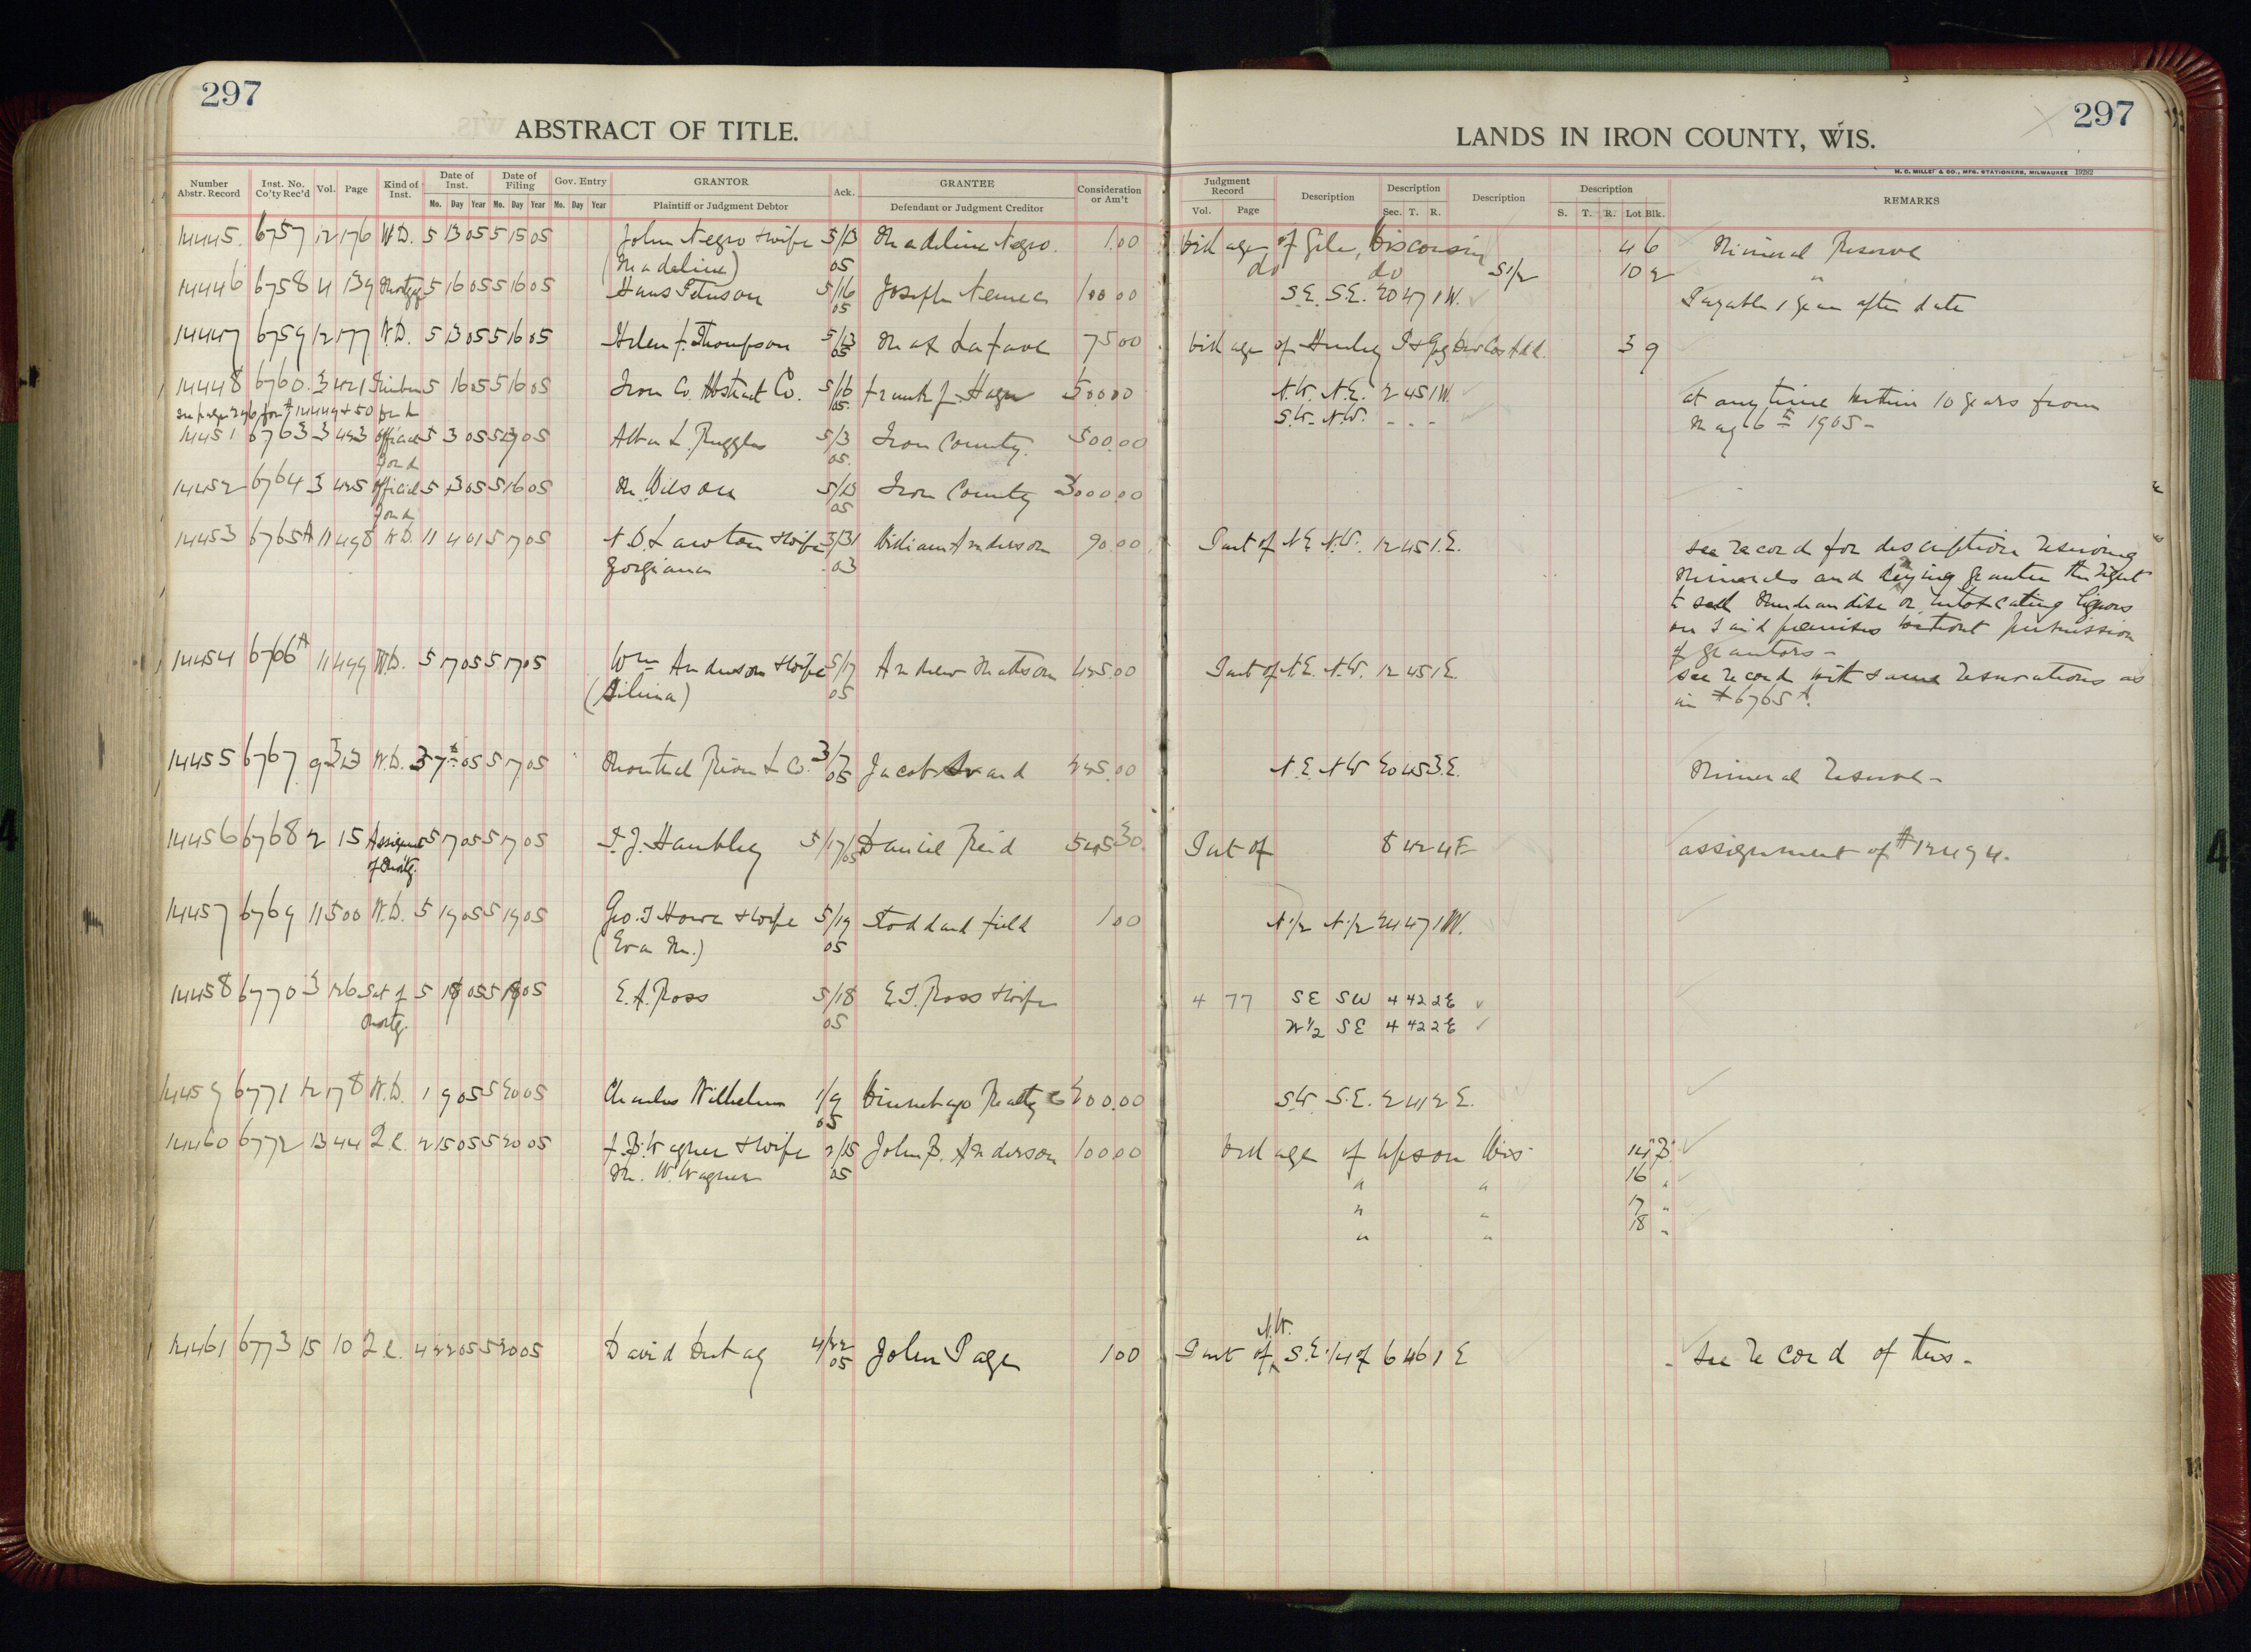 297
ABSTRACT OF TITLE.
LANDS IN IRON COUNTY, WIS.
297
H. C. MILLER & CO., MFG. STATIONERS, MILWAUKEE 19282
Number Abstr. Record | Inst. No. Co'ty Rec'd | Vol. | Page | Kind of Inst. | Date of Inst. Mo. Day Year | Date of Filing Mo. Day Year | Gov. Entry Mo. Day Year | GRANTOR Plaintiff or Judgment Debtor | Ack. | GRANTEE Defendant or Judgment Creditor | Consideration or Am't | Judgment Record Vol. Page | Description | Description Sec. T. R. | Description | Description S. T. R. Lot Blk. | REMARKS
14445. 6757 12 176 W.D. 5 13 05 5 15 05 John Negro & wife 5/13 Madeline Negro. 1.00 Village of Gile, Wisconsin 4 6 Mineral Reserve
(Madeline) 05 do do S 1/2 10 2 "
14446 6758 4 139 Mortg. 5 16 05 5 16 05 Hans Peterson 5/16 Joseph Nemec 100 00 S.E. S.E. 20 47 1 W. Payable 1 year after date
05
14447 6759 12 177 W.D. 5 13 05 5 16 05 Helen F. Thompson 5/13 Max Lafave 75 00 Village of Hurley 3 9
05
14448 6760 3 421 5 16 05 5 16 05 Iron Co. Abstract Co. 5/16 Frank J. Hager 500.00 N.W. N.E. 2 45 1 W. at any time within 10 years from
see page 296 for # 14449 & 50 05. S.W. N.W. - - - May 16th 1905 -
14451 6763 3 423 Official 5 3 05 5 05 L. Ruggles 5/3 Iron County. 500.00
Bond 05.
14452 6764 3 425 Official 5 3 05 5 16 05 M. Wilson 5/13 Iron County 3000.00
Bond 05
14453 6765A 11 498 W.D. 11 4 01 5 17 05 N.D. Lawton & wife 3/31 William Anderson 90.00 Part of N.E. N.W. 12 45 1 E. see record for description reserving
Georgiana 03 Minerals and denying grantee the right
to sell Merchandise or intoxicating liquors
on said premises without permission
of grantors -
14454 6766A 11 499 W.D. 5 17 05 5 17 05 Wm Anderson & wife 5/17 Andrew Mattson 425.00 Part of N.E. N.W. 12 45 1 E. see record with same reservations as
(Silina) 05 in # 6765 A.
14455 6767 9 323 W.D. 3 7th 05 5 17 05 Montreal River L. Co. 3/7 Jacob Svard 225.00 N.E. N.W 20 45 3.E. Mineral reserve -
05
14456 6768 2 15 Assignmt 5 17 05 5 17 05 T.J. Hambley 5/17/05 Daniel Reid 525 30 Part of 8 42 4 E assignment of # 12494.
of Mortg.
14457 6769 11 500 W.D. 5 19 05 5 19 05 Geo. T Howe & wife 5/19 Stoddard Field 1 00 N 1/2 N. 1/2 24 47 1 W.
(Eva M.) 05
14458 6770 3 126 Sat of 5 18 05 5 18 05 E. A. Ross 5/18 E.T. Ross & wife 4 77 SE SW 4 42 2 E
Mortg. 05 W 1/2 SE 4 42 2 E
14459 6771 12 178 W.D. 1 9 05 5 20 05 Charles Wilhelm 1/9 Winnebago Realty Co 200.00 S.W. S.E. 2 41 2 E.
05
14460 6772 13 44 Q.C. 2 15 05 5 20 05 F.B. Wagner & wife 2/15 John B. Anderson 100 00 Village of Upson Wis 14 B.
M. W. Wagner 05 " " 16 "
" " 17 "
" " 18 "
14461 6773 15 10 Q.C. 4 22 05 5 20 05 David 4/22 John Page 1 00 Part of N.W. S.E. 1/4 of 6 46 1 E - see record of this -
05